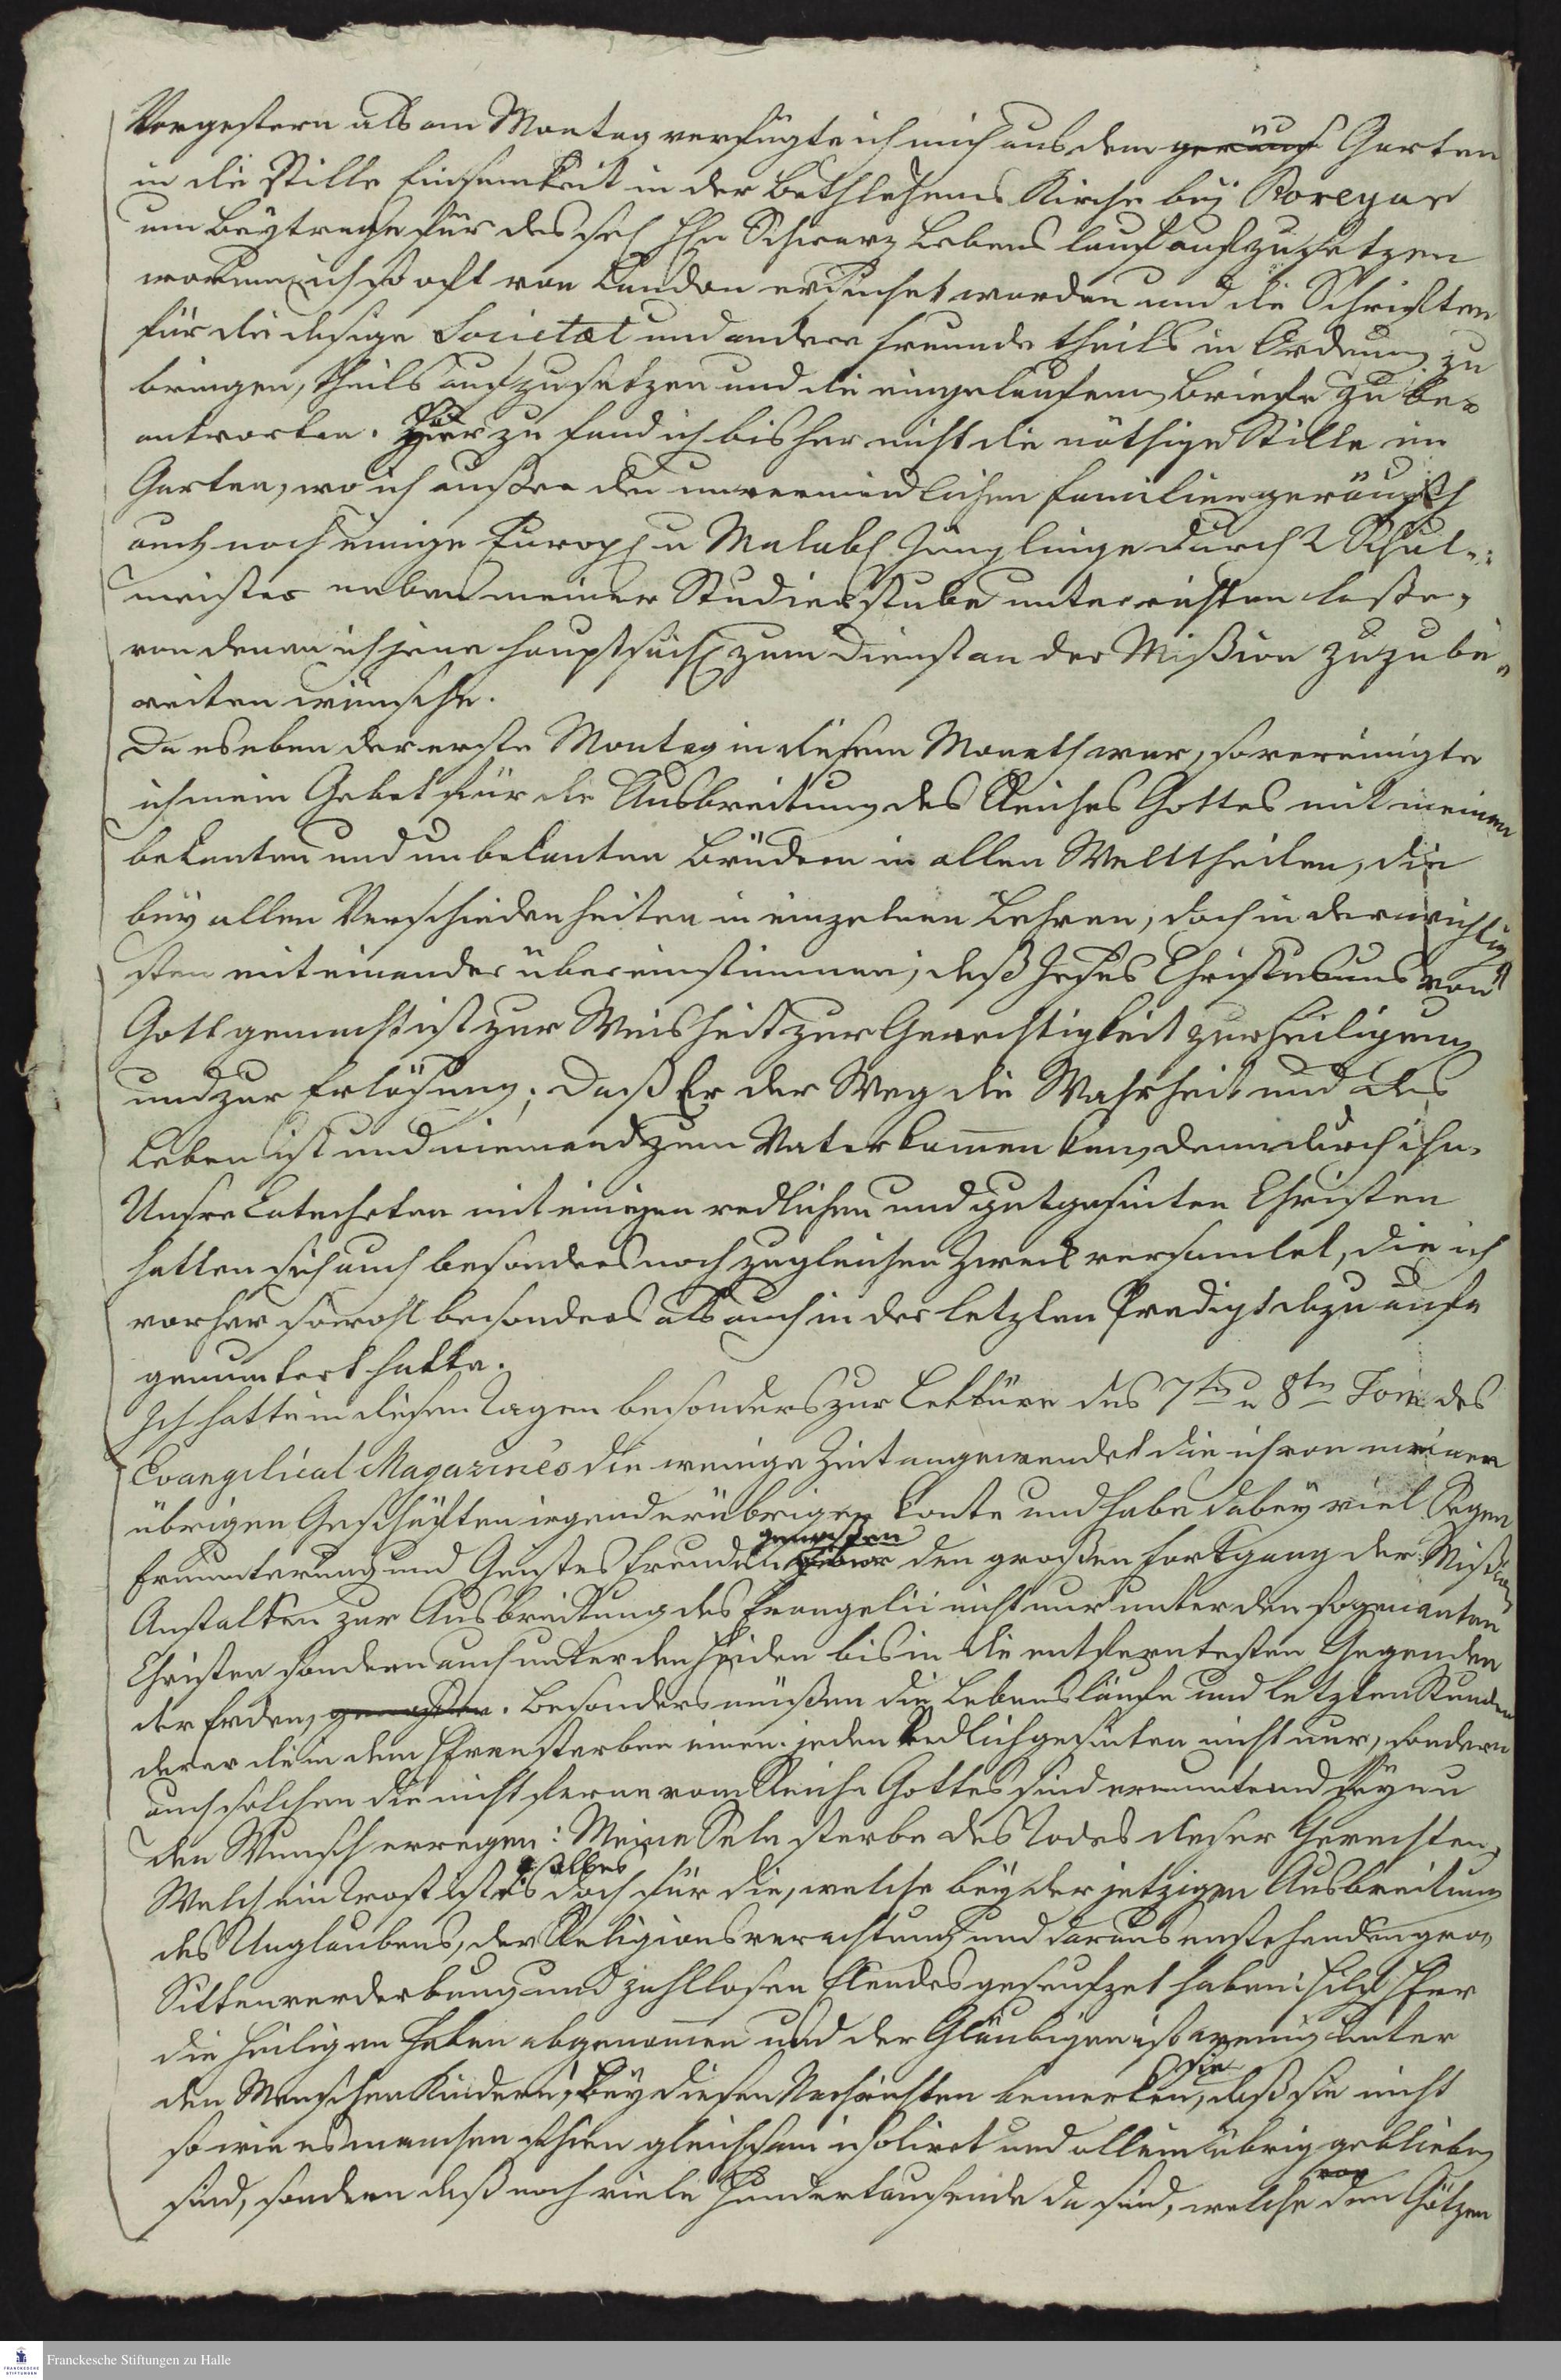 Vorgestern als am Montag verfügte ich mich aus dem geräusch Garten
in die stille Einsamkeit in der Bethlehems Kirche bey Poreyar
um Beytraege für des sel HErn Schwarz Lebens lauf aufzusetzen
worum ich so oft von London ersuchet worden und die Schriften
für die dasige Societæt und andere Freunde theils in Ordnung zu
bringen, theils aufzusetzen und die eingelaufenen Briefe zu be-
antworten. Hierzu fand ich bisher nicht die nöthige Stille im
Garten, wo ich außer den unvermeidlichen Familiengeräusch
auch noch einige Europ u Malab Jünglinge durch 2 Schul-
meister neben meiner Studierstube unterrichten laße,
von denen ich jene hauptsächl zum Dienst an der Mißion zuzube-
reiten wünsche.
Da es eben der erste Montag in diesem Monath war, so vereinigte
ich mein Gebet für die Ausbreitung des Reiches Gottes mit meinen
bekanten und unbekanten Brüdern in allen Welttheilen, die
bey allen Verschiedenheiten in einzelnen Lehren, doch in der wichtig
sten mit einander übereinstimmen, daß Jesus Christus uns von
Gott gemacht ist zur Weisheit zur Gerechtigkeit zur Heiligung
und zur Erlösung; daß Er der Weg die Wahrheit und das
Leben ist und niemand zum Vater kommen kan, denn durch ihn.
Unsre Catecheten mit einigen redlichen und gutgesinten Christen
hatten sich auch besonders noch zu gleichen Zweck versamlet, die ich
vorher sowohl besonders als auch in der letzten Predigt dazu aufe
gemuntert hatte.
Ich hatte in diesen Tagen besonders zur Lektüre des 7ten u 8ten Tom des
Evangelical Magazines die wenige Zeit angewendet die ich von meinen
übrigen Geschäften irgend erübrigen konte und habe dabey viel Segen
Ermunterung und Geistes Freude genoßen über den großen Fortgang der Mißions
Anstalten zur Ausbreitung des Evangelii nicht nur unter den sogenanten
Christen sondern auch unter den Heiden bis in die entferntesten Gegenden
der Erden, genoßen. Besonders müßen die Lebensläufe und letzten Stunden
derer die in dem HErrn sterben einem jeden Redlichgesinten nicht nur, sondern
auch solchen die nicht ferne vom Reiche Gottes sind ermunternd seyn u
den Wunsch erregen: Meine Sele sterbe des Todes dieser Gerechten,
Welch ein Trost ist dis alles doch für die, welche bey der jetzigen Ausbreitung
des Unglaubens, der Religionsverachtung und daraus enstehenden gros
Sittenverderbung und zahllosen Elendes geseufzet haben: hilf HErr
die Heiligen haben abgenommen und der Gläubigen ist wenig unter
den Menschen Kindern, bey diesen Nachrichten bemerken sie, daß sie nicht
so wie es manchen schien gleichsam isolirt und allein übrig geblieben
sind, sondern daß noch viele Hunderttausende da sind, welche vor dem Götzen
Franckesche Stiftungen zu Halle